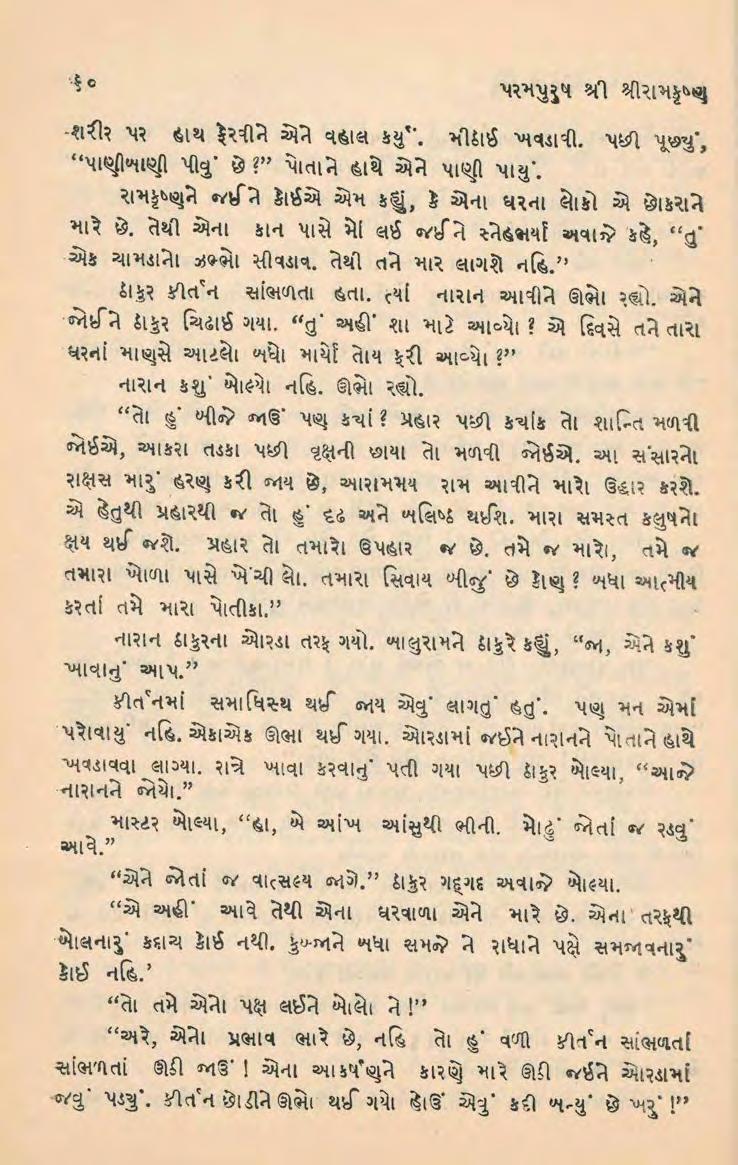 ૬૦
પરમપુરુષ શ્રી શ્રીરામકૃષ્ણ
શરીર પર હાથ ફેરવીને એને વહાલ કર્યું. મીઠાઈ ખવડાવી. પછી પૂછ્યું,
“પાણીબાણી પીવું છે ?” પોતાને હાથે એને પાણી પાયું.
રામકૃષ્ણને જઈને કોઈએ એમ કહ્યું, કે એના ઘરના લોકો એ છોકરાને
મારે છે. તેથી એના કાન પાસે મોં લઈ જઈને સ્નેહભર્યા અવાજે કહે, “તું
એક ચામડાનો ઝભ્ભો સીવડાવ. તેથી તને માર લાગશે નહિ.”
ઠાકુર કીર્તન સાંભળતા હતા. ત્યાં નારાન આવીને ઊભો રહ્યો. એને
જોઈને ઠાકુર ચિઢાઈ ગયા. “તું અહીં શા માટે આવ્યો ? એ દિવસે તને તારા
ઘરનાં માણસે આટલો બધો માર્યો તોય ફરી આવ્યો ?”
નારાન કશું બોલ્યો નહિ. ઊભો રહ્યો.
“તો હું બીજે જાઉં પણ ક્યાં ? પ્રહાર પછી ક્યાંક તો શાન્તિ મળવી
જોઈએ, આકરા તડકા પછી વૃક્ષની છાયા તો મળવી જોઈએ. આ સંસારનો
રાક્ષસ મારું હરણ કરી જાય છે, આરામમય રામ આવીને મારો ઉદ્ધાર કરશે.
એ હેતુથી પ્રહારથી જ તો હું દૃઢ અને બલિષ્ઠ થઈશ. મારા સમસ્ત કલુષનો
ક્ષય થઈ જશે. પ્રહાર તો તમારો ઉપહાર જ છે. તમે જ મારો, તમે જ
તમારા ખોળા પાસે ખેંચી લો. તમારા સિવાય બીજું છે કોણ ? બધા આત્મીય
કરતાં તમે મારા પોતીકા.”
નારાન ઠાકુરના ઓરડા તરફ ગયો. બાબુરામને ઠાકુરે કહ્યું, “જા, એને કશું
ખાવાનું આપ.”
કીર્તનમાં સમાધિસ્થ થઈ જાય એવું લાગતું હતું. પણ મન એમાં
પરોવાયું નહિ. એકાએક ઊભા થઈ ગયા. ઓરડામાં જઈને નારાનને પોતાને હાથે
ખવડાવવા લાગ્યા. રાત્રે ખાવા કરવાનું પતી ગયા પછી ઠાકુર બોલ્યા, “આજે
નારાનને જોયો.”
માસ્ટર બોલ્યા, “હા, બે આંખ આંસુથી ભીની. મોઢું જોતાં જ રડવું
આવે.”
“એને જોતાં જ વાત્સલ્ય જાગે.” ઠાકુર ગદ્ગદ અવાજે બોલ્યા.
“એ અહીં આવે તેથી એના ઘરવાળા એને મારે છે. એના તરફથી
બોલનારું કદાચ કોઈ નથી. કુબ્જાને બધા સમજે ને રાધાને પક્ષે સમજાવનારું
કોઈ નહિ.’
“તો તમે એનો પક્ષ લઈને બોલો ને !”
“અરે, એનો પ્રભાવ ભારે છે, નહિ તો હું વળી કીર્તન સાંભળતાં
સાંભળતાં ઊઠી જાઉં ! એના આકર્ષણને કારણે મારે ઊઠી જઈને ઓરડામાં
જવું પડ્યું. કીર્તન છોડીને ઊભો થઈ ગયો હોઉં એવું કદી બન્યું છે ખરું !”